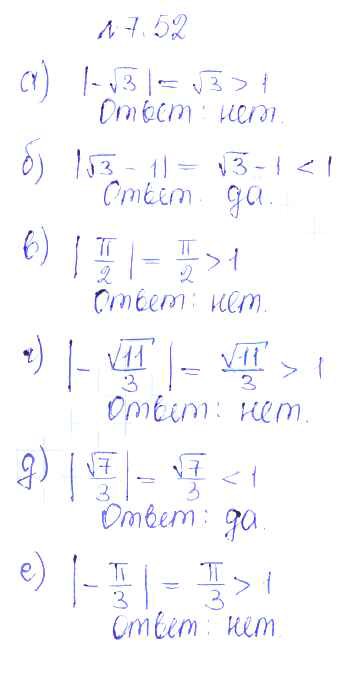 №7.52
а) |-√3| = √3 > 1
Ответ: нет.
б) |√3 - 1| = √3 - 1 < 1
Ответ. да.
в) |π/2| = π/2 > 1
Ответ: нет.
г) |-√11/3| = √11/3 > 1
Ответ: нет.
д) |√7/3| = √7/3 < 1
Ответ: да.
е) |-π/3| = π/3 > 1
Ответ: нет